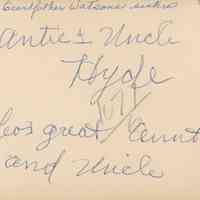 Grandfather Watsons sisters
Antie & Uncle
Hyde
Leos great Aunt
and Uncle